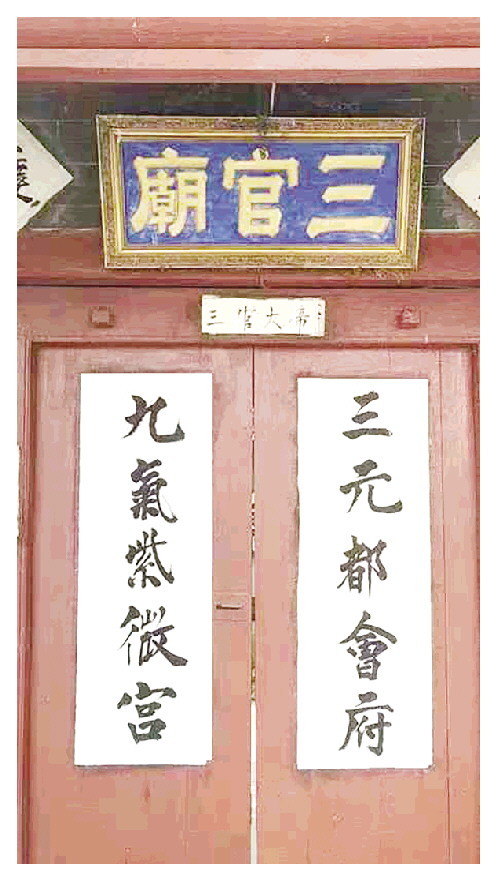 三官廟
三官大帝
三元都會府
九氣紫微宮